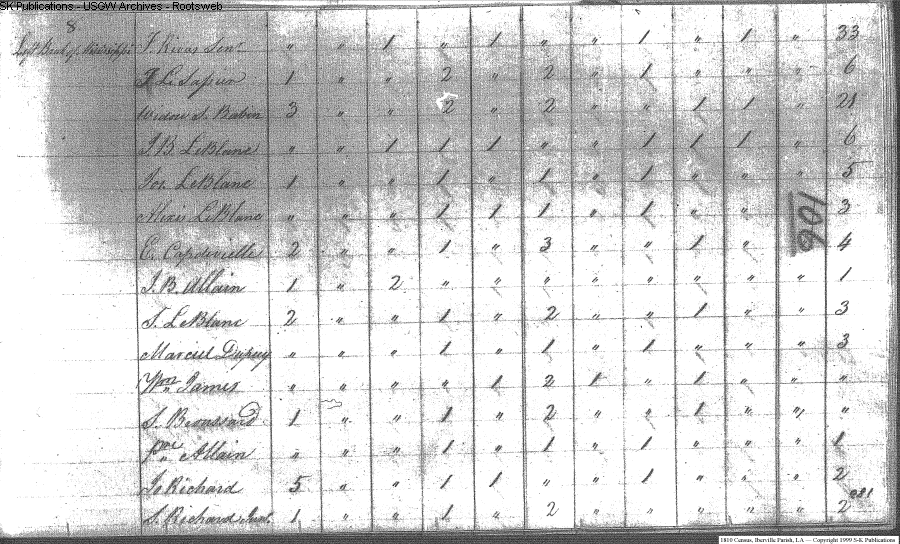 SK Publications - USGW Archives - Rootsweb
8
Left Bank of Mississippi F. Rivas Senr " " 1 " 1 " " 1 " 1 " 33
L. Sapen 1 " " 2 " 2 " 1 " " " 6
Widow S. Babin 3 " " 2 " 2 " " 1 1 " 21
J. B. LeBlanc " " 1 1 1 " " 1 1 1 " 6
Jos. LeBlanc 1 " " 1 " 1 " 1 " " " 5
Alexis LeBlanc " " " 1 1 1 " 1 " " 3
106
E. Capdevielle 2 " " 1 " 3 " " 1 " 4
J. B. Allain 1 " 2 " " " " " " " " 1
S. LeBlanc 2 " " 1 " 2 " " 1 " " 3
Marcel Dupuy " " " 1 " 1 " 1 " " " 3
Wm James " " " " 1 2 1 " 1 " " "
S. Broussard 1 " " 1 " 2 " " 1 " " "
Allain " " " 1 " 1 " 1 " " " 1
Jo Richard 5 " " 1 1 " " 1 " " " 2
S. Richard Junr. 1 " " 1 " 2 " " " " " 2
1810 Census, Iberville Parish, LA — Copyright 1999 S-K Publications